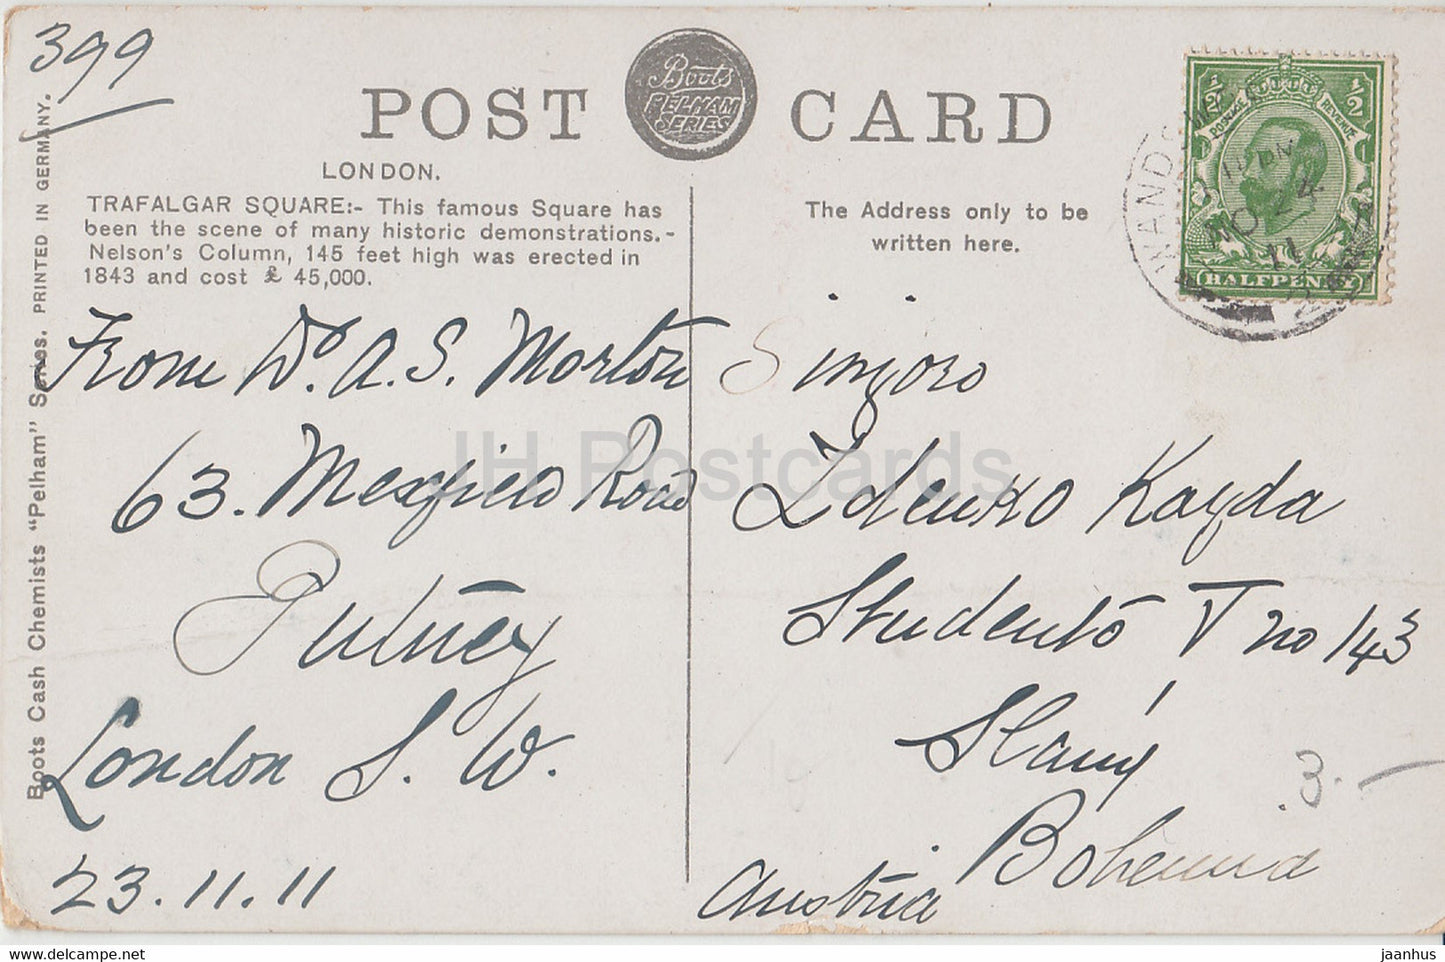 399
POST CARD
Boots
PELHAM
SERIES
LONDON.
TRAFALGAR SQUARE:- This famous Square has
been the scene of many historic demonstrations.-
Nelson's Column, 145 feet high was erected in
1843 and cost £ 45,000.
The Address only to be
written here.
Boots Cash Chemists "Pelham" Series. PRINTED IN GERMANY.
½ ½
POSTAGE REVENUE
HALFPENNY
WANDS
11 PM
NO 24
11
From Dr. A. S. Morton
63. Mexfield Road
Putney
London S. W.
23.11.11
Sinjoro
Zdenko Kayda
Studento V no 143
Slaný
Bohemia
Austria
3.-
JH Postcards
jaanhus